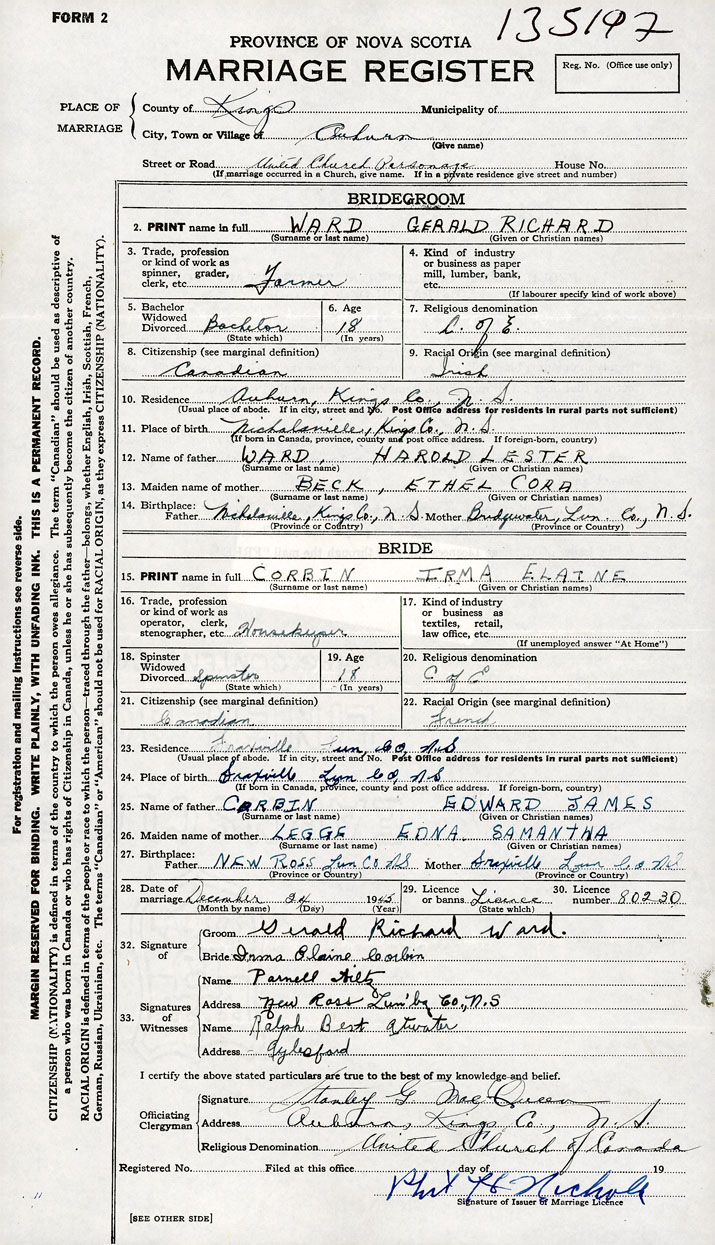 FORM 2
135197
PROVINCE OF NOVA SCOTIA
MARRIAGE REGISTER
Reg. No. (Office use only)
PLACE OF MARRIAGE
County of Kings Municipality of
City, Town or Village of Auburn
(Give name)
Street or Road United Church Parsonage House No.
(If marriage occurred in a Church, give name. If in a private residence give street and number)
BRIDEGROOM
2. PRINT name in full WARD GERALD RICHARD
(Surname or last name) (Given or Christian names)
3. Trade, profession or kind of work as spinner, grader, clerk, etc. Farmer
4. Kind of industry or business as paper mill, lumber, bank, etc.
(If labourer specify kind of work above)
5. Bachelor Widowed Divorced Bachelor
(State which)
6. Age 18
(In years)
7. Religious denomination
C. of E.
8. Citizenship (see marginal definition)
Canadian
9. Racial Origin (see marginal definition)
Irish
10. Residence Auburn, Kings Co., N. S.
(Usual place of abode. If in city, street and No. Post Office address for residents in rural parts not sufficient)
11. Place of birth Nicholsville, Kings Co., N. S.
(If born in Canada, province, county and post office address. If foreign-born, country)
12. Name of father WARD, HAROLD LESTER
(Surname or last name) (Given or Christian names)
13. Maiden name of mother BECK, ETHEL CORA
(Surname or last name) (Given or Christian names)
14. Birthplace: Father Nicholsville, Kings Co., N. S. Mother Bridgewater, Lun. Co., N. S.
(Province or County) (Province or Country)
BRIDE
15. PRINT name in full CORBIN IRMA ELAINE
(Surname or last name) (Given or Christian names)
16. Trade, profession or kind of work as operator, clerk, stenographer, etc. Housekeeper
17. Kind of industry or business as textiles, retail, law office, etc.
(If unemployed answer "At Home")
18. Spinster Widowed Divorced Spinster
(State which)
19. Age 18
(In years)
20. Religious denomination
C of E
21. Citizenship (see marginal definition)
Canadian
22. Racial Origin (see marginal definition)
French
23. Residence Fraxville Lun, Co, N.S
(Usual place of abode. If in city, street and No. Post Office address for residents in rural parts not sufficient)
24. Place of birth Fraxville Lun Co, NS
(If born in Canada, province, county and post office address. If foreign-born, country)
25. Name of father CORBIN EDWARD JAMES
(Surname or last name) (Given or Christian names)
26. Maiden name of mother LEGGE EDNA SAMANTHA
(Surname or last name) (Given or Christian names)
27. Birthplace: Father NEW ROSS Lun Co NS Mother Fraxville Lun Co NS
(Province or Country) (Province or Country)
28. Date of marriage December 24 1945
(Month by name) (Day) (Year)
29. Licence or banns Licence
(State which)
30. Licence number 80230
32. Signature of
Groom Gerald Richard Ward.
Bride Irma Elaine Corbin
33. Signatures of Witnesses
Name Parnell Hiltz
Address New Ross Lun'bg Co, N.S
Name Ralph Best Atwater
Address Aylesford
I certify the above stated particulars are true to the best of my knowledge and belief.
Officiating Clergyman
Signature Stanley G MacQueen
Address Auburn, Kings Co., N. S.
Religious Denomination United Church of Canada
Registered No. Filed at this office day of 19
Phil H Nichols
Signature of Issuer of Marriage Licence
[SEE OTHER SIDE]
For registration and mailing instructions see reverse side.
MARGIN RESERVED FOR BINDING. WRITE PLAINLY, WITH UNFADING INK. THIS IS A PERMANENT RECORD.
CITIZENSHIP (NATIONALITY) is defined in terms of the country to which the person owes allegiance. The term "Canadian" should be used as descriptive of
a person who was born in Canada or who has rights of Citizenship in Canada, unless he or she has subsequently become the citizen of another country.
RACIAL ORIGIN is defined in terms of the people or race to which the person—traced through the father—belongs, whether English, Irish, Scottish, French,
German, Russian, Ukrainian, etc. The terms "Canadian" or "American" should not be used for RACIAL ORIGIN, as they express CITIZENSHIP (NATIONALITY).